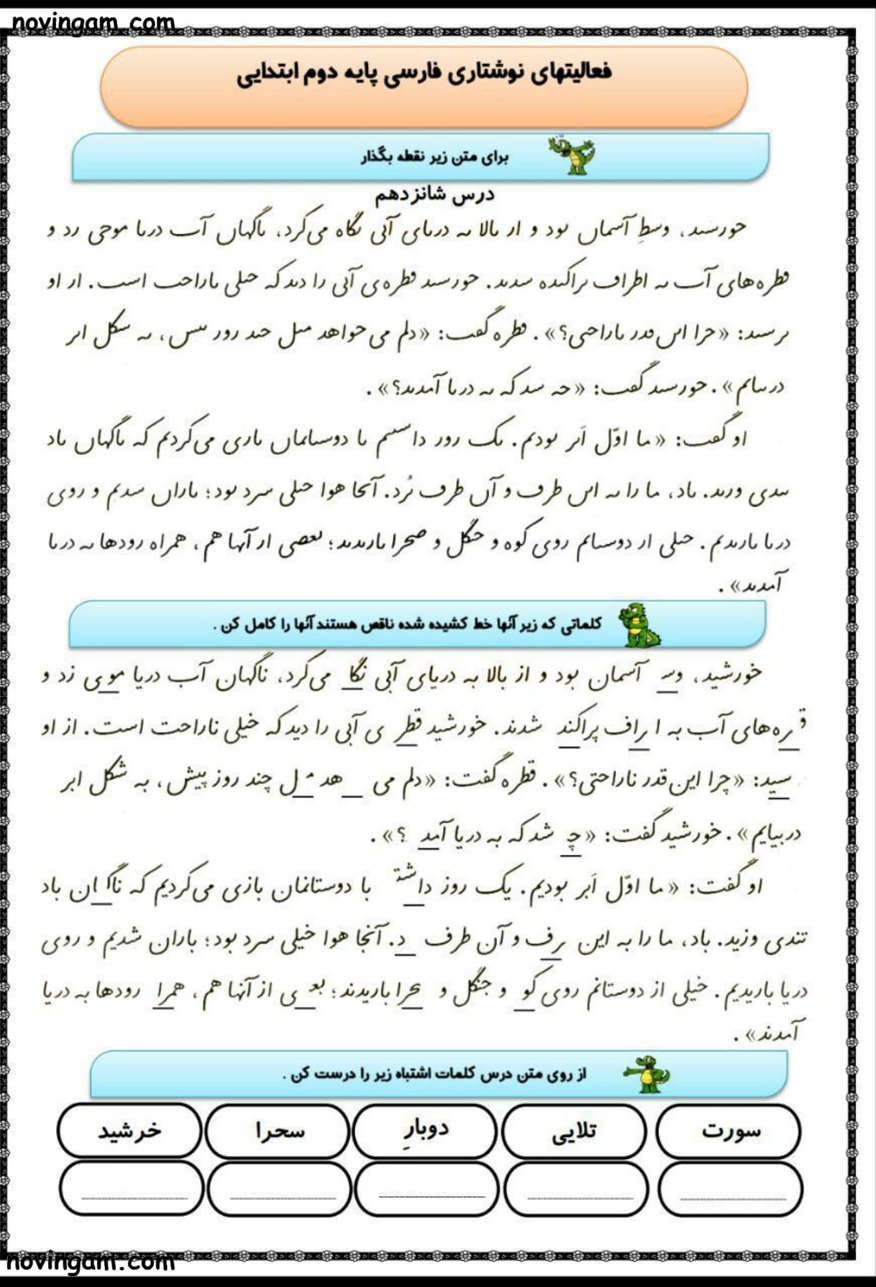 novingam.com
فعالیتهای نوشتاری فارسی پایه دوم ابتدایی
برای متن زیر نقطه بگذار
درس شانزدهم
حورسٮد، وسطِ آسماں ٮود و ار ٮالا ٮه درٮای آٮی ٮگاه می‌کرد، ٮاگهاں آٮ درٮا موحی رد و
ڡطره‌های آٮ ٮه اطراڡ ٮراکٮده سدٮد. حورسٮد ڡطره‌ی آٮی را دٮد که حٮلی ٮاراحٮ اسٮ. ار او
ٮرسٮد: «حرا اٮں ڡدر ٮاراحٮی؟». ڡطره گڡٮ: «دلم می حواهد مٮل حٮد رور ٮٮس، ٮه سکل اٮر
درٮٮاٮم». حورسٮد گڡٮ: «حه سد که ٮه درٮا آمدٮد؟».
او گڡٮ: «ما اوّل اَٮر ٮودٮم. ٮک رور داسٮٮم ٮا دوسٮاٮماں ٮاری می‌کردٮم که ٮاگهاں ٮاد
ٮٮدی ورٮد. ٮاد، ما را ٮه اٮں طرڡ و آں طرڡ ٮُرد. آٮحا هوا حٮلی سرد ٮود؛ ٮاراں سدٮم و روی
درٮا ٮارٮدٮم. حٮلی ار دوسٮاٮم روی کوه و حٮگل و صحرا ٮارٮدٮد؛ ٮعصی ار آٮها هم، همراه رودها ٮه درٮا
آمدٮد».
کلماتی که زیر آنها خط کشیده شده ناقص هستند آنها را کامل کن .
خورشید، وسـ آسمان بود و از بالا به دریای آبی نگا می‌کرد، ناگهان آب دریا مو ی زد و
قـ ره‌های آب به ا راف پراکند شدند. خورشید قطر ی آبی را دید که خیلی ناراحت است. از او
سید: «چرا این قدر ناراحتی؟». قطره گفت: «دلم می __هد مـ ل چند روز پیش، به شکل ابر
دربیایم». خورشید گفت: «چـ شد که به دریا آمد ؟».
او گفت: «ما اوّل اَبر بودیم. یک روز داشتـ با دوستانمان بازی می‌کردیم که ناگـ ان باد
تندی وزید. باد، ما را به این رف و آن طرف _د. آنجا هوا خیلی سرد بود؛ باران شدیم و روی
دریا باریدیم. خیلی از دوستانم روی کو و جنگل و حرا باریدند؛ بعـ ی از آنها هم، همرا رودها به دریا
آمدند».
از روی متن درس کلمات اشتباه زیر را درست کن .
سورت تلایی دوبارِ سحرا خرشید
novingam.com